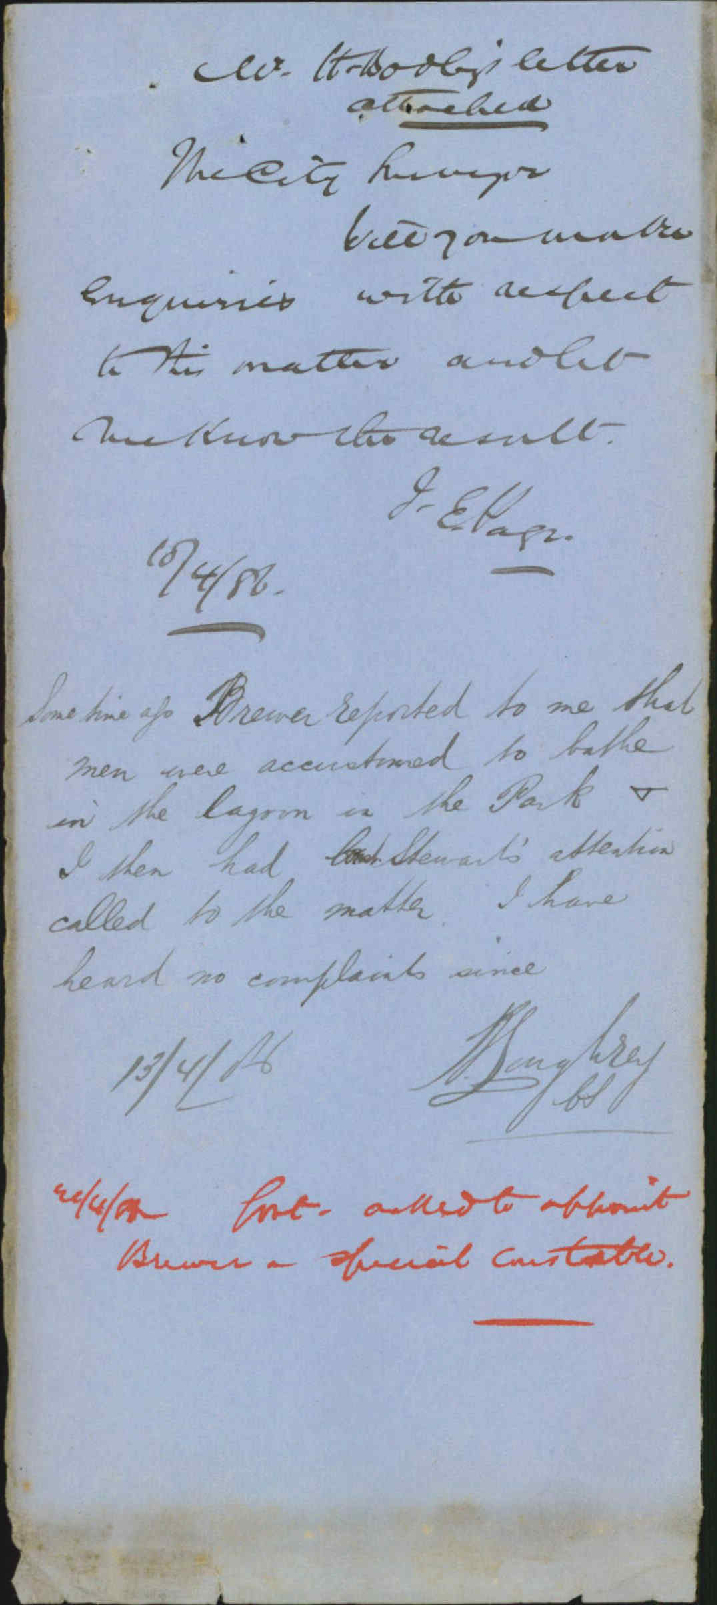 Mr. H. Bodley's letter
attached
The City Surveyor
Will you make
Enquiries with respect
to this matter and let
me know the result.
J. E. Page.
10/4/86.
Some time ago Brewer reported to me that
men were accustomed to bathe
in the lagoon in the Park &
I then had Stewart's attention
called to the matter. I have
heard no complaints since
13/4/86
Loughrey
CS
Govt. asked to appoint
Brewer a special constable.